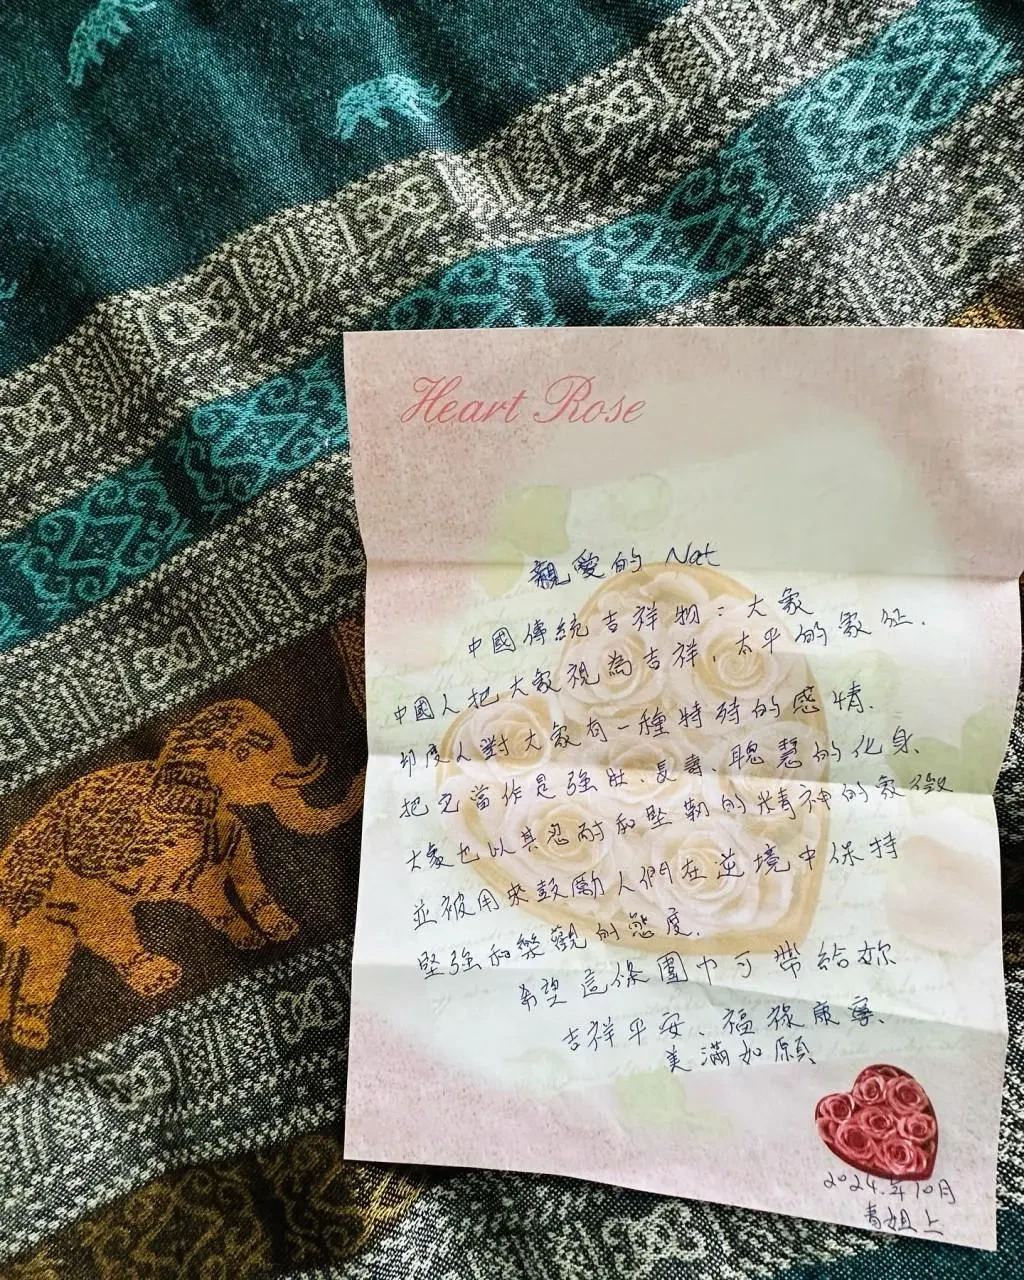 Heart Rose
親愛的 Nat
中國傳統吉祥物:大象
中國人把大象視為吉祥,太平的象征.
印度人對大象有一種特殊的感情.
把它當作是強壯、長壽、聰慧的化身、
大象也以其忍耐和堅韌的精神的象徵
並被用來鼓勵人們在逆境中保持
堅強和樂觀的態度.
希望這條圍巾可帶給妳
吉祥平安、福祿康寧、
美滿如願
2024.年10月
青姐上